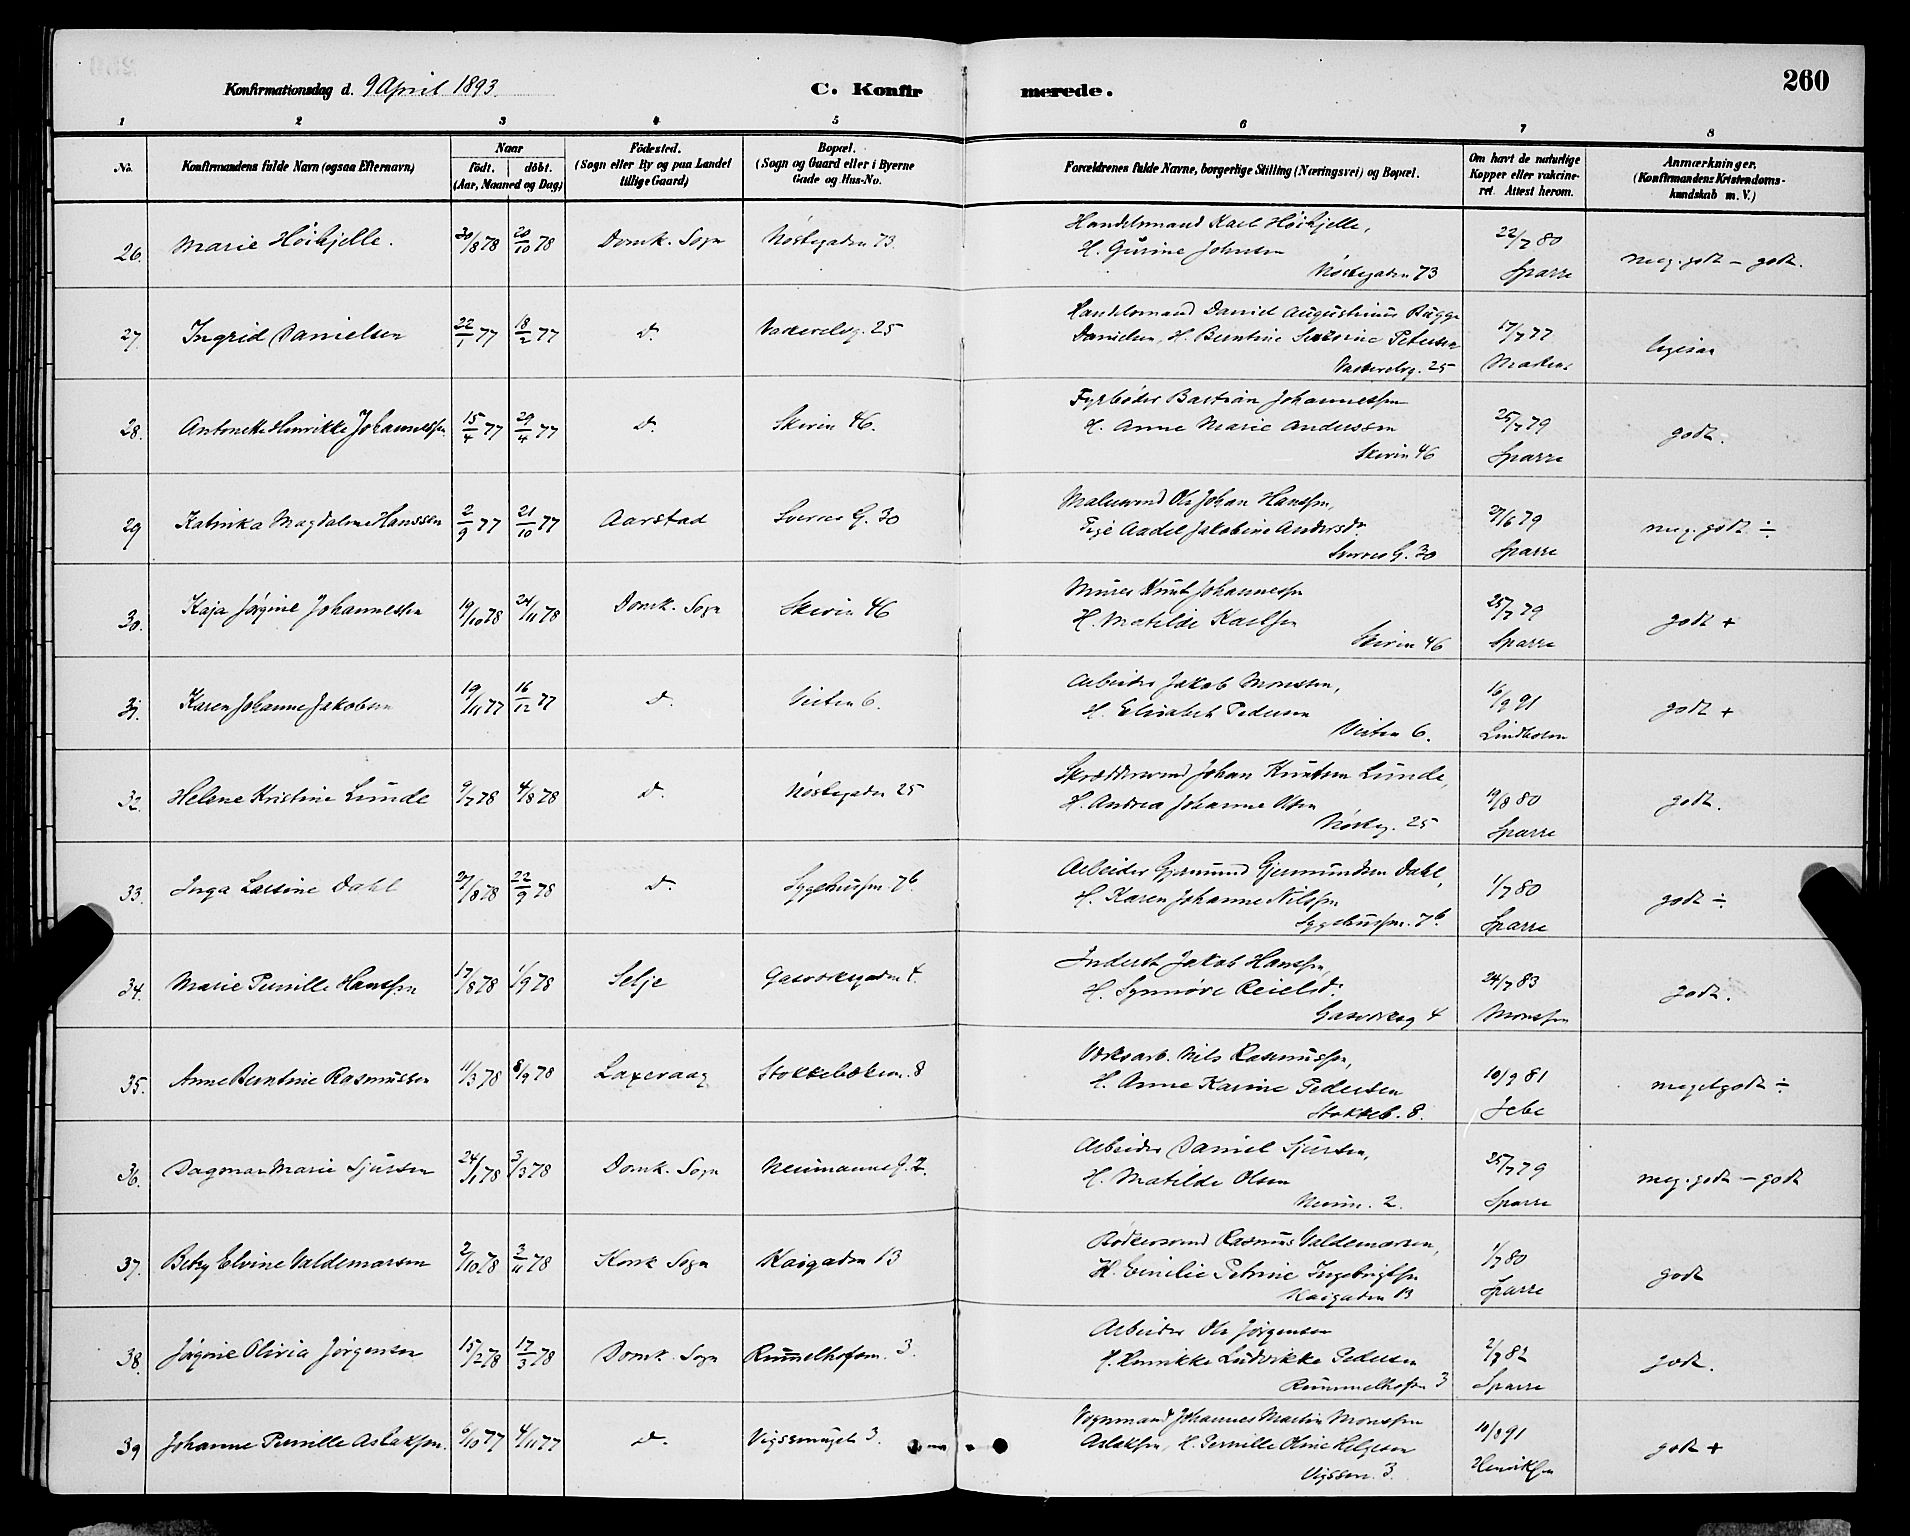 260
Konfirmationsdag d. 9 April 1893.
C. Konfirmerede.
1 2 3 4 5 6 7 8
No.
Konfirmandens fulde Navn (ogsaa Efternavn)
Naar
födt. döbt.
(Aar, Maaned og Dag)
Födested.
(Sogn eller By og paa Landet
tillige Gaard)
Bopæl.
(Sogn og Gaard eller i Byerne
Gade og Hus-No.
Forældrenes fulde Navne, borgerlige Stilling (Næringsvei) og Bopæl.
Om havt de naturlige
Kopper eller vakcine-
ret. Attest herom.
Anmærkninger.
(Konfirmandens Kristendoms-
kundskab m. V.)
26. Marie Höihjelle. 30/8 78 20/10 78 Domk. Sogn Nöstegaden 73.
Handelsmand Karl Höihjelle,
H. Gurine Johnsen
Nöstegaden 73
22/7 80
Sparre
meg. godt – godt.
27. Ingrid Danielsen 22/1 77 18/2 77 D. Vaskerelvg. 25
Handelsmand Daniel Augustinus Bugge
Danielsen, H. Berntine Severine Petersen
Vaskerelvg. 25
17/7 77
Madsen
ligesaa
28. Antonette Henrikke Johannessen 15/4 77 29/4 77 D. Skivin 46.
Fyrböder Bastian Johannessen
H. Anne Marie Anderssen
Skivin 46
25/7 79
Sparre
godt.
29 Katinka Magdalene Hanssen 2/9 77 21/10 77 Aarstad Sverres G. 30
Malersvend Ole Johan Hanssen,
Pige Aadel Jakobine Andersdr.
Sverres G. 30
27/6 79
Sparre
meg. godt ÷
30. Kaja Jörgine Johannessen 19/10 78 24/11 78 Domk. Sogn Skivin 46
Murer Knut Johannessen
H. Matilde Karlsen
Skivin 46
25/7 79
Sparre
godt +
31. Karen Johanne Jakobsen 19/11 77 16/12 77 D. Veiten 6.
Arbeider Jakob Monssen,
H. Elisabet Pedersen
Veiten 6.
16/9 91
Lindholm
godt +
32. Helene Kristine Lunde 9/7 78 4/8 78 D. Nöstegaden 25
Skræddersvend Johan Knutsen Lunde,
H. Andrea Johanne Olsen
Nösteg. 25
19/8 80
Sparre
godt.
33. Inga Larsine Dahl 27/8 78 22/9 78 D. Sygehussm. 7b
Arbeider Gjermund Gjermundsen Dahl,
H. Karen Johanne Nilssen
Sygehussm. 7b.
1/7 80
Sparre
godt ÷
34. Marie Pernille Hanssen 17/8 78 1/9 78 Selje Gasværksgaden 4.
Inderst Jakob Hanssen,
H. Synnöve Reielsd.
Gasværksg 4
24/7 83
Monssen
godt.
35. Anne Berntine Rasmussen 11/3 78 8/9 78 Laxevaag Stokkebækm. 8
Værksarb. Nils Rasmussen,
H. Anne Karine Pedersen
Stokkeb. 8.
10/9 81
Jebe
meget godt ÷
36. Dagmar Marie Sjursen 24/1 78 3/3 78 Domk. Sogn Neumanns G. 2.
Arbeider Daniel Sjursen,
H. Matilde Olsen
Neum. 2.
25/7 79
Sparre
meg. godt – godt
37. Betzy Elvine Valdemarsen 2/10 78 3/11 78 Kork. Sogn Kaigaden 13
Bödkersvend Rasmus Valdemarsen,
H. Emilie Petrine Ingebrigtsen
Kaigaden 13
1/7 80
Sparre
godt
38. Jörgine Olivia Jörgensen 15/2 78 17/3 78 Domk. Sogn Rummelhofsm. 3.
Arbeider Ole Jörgensen
H. Henrikke Ludvikke Pedersen
Rummelhofsm 3
2/7 82
Sparre
godt.
39 Johanne Pernille Aslaksen. 6/10 77 4/11 77 D. Vigssmuget 3.
Vognmand Johannes Martin Monssen
Aslaksen, H. Pernille Oline Helgesen
Vigssm. 3.
10/8 91
Henriksen
godt +